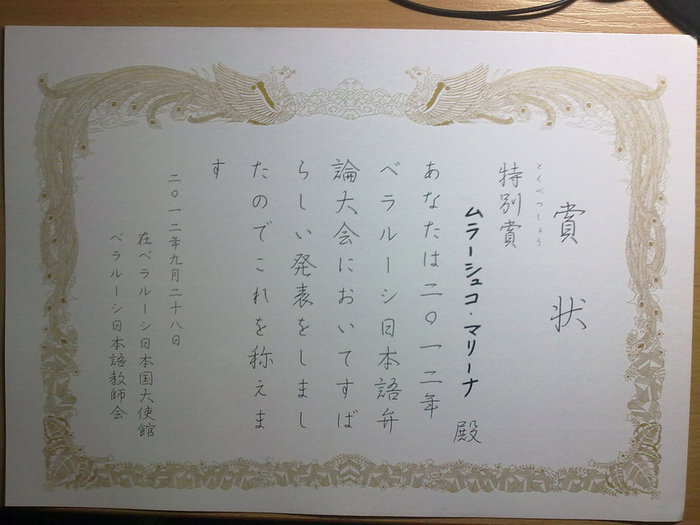 賞状
とくべつしょう
特別賞
ムラーシュコ・マリーナ 殿
あなたは二〇一二年
ベラルーシ日本語弁
論大会においてすば
らしい発表をしまし
たのでこれを称えま
す
二〇一二年九月二十八日
在ベラルーシ日本国大使館
ベラルーシ日本語教師会